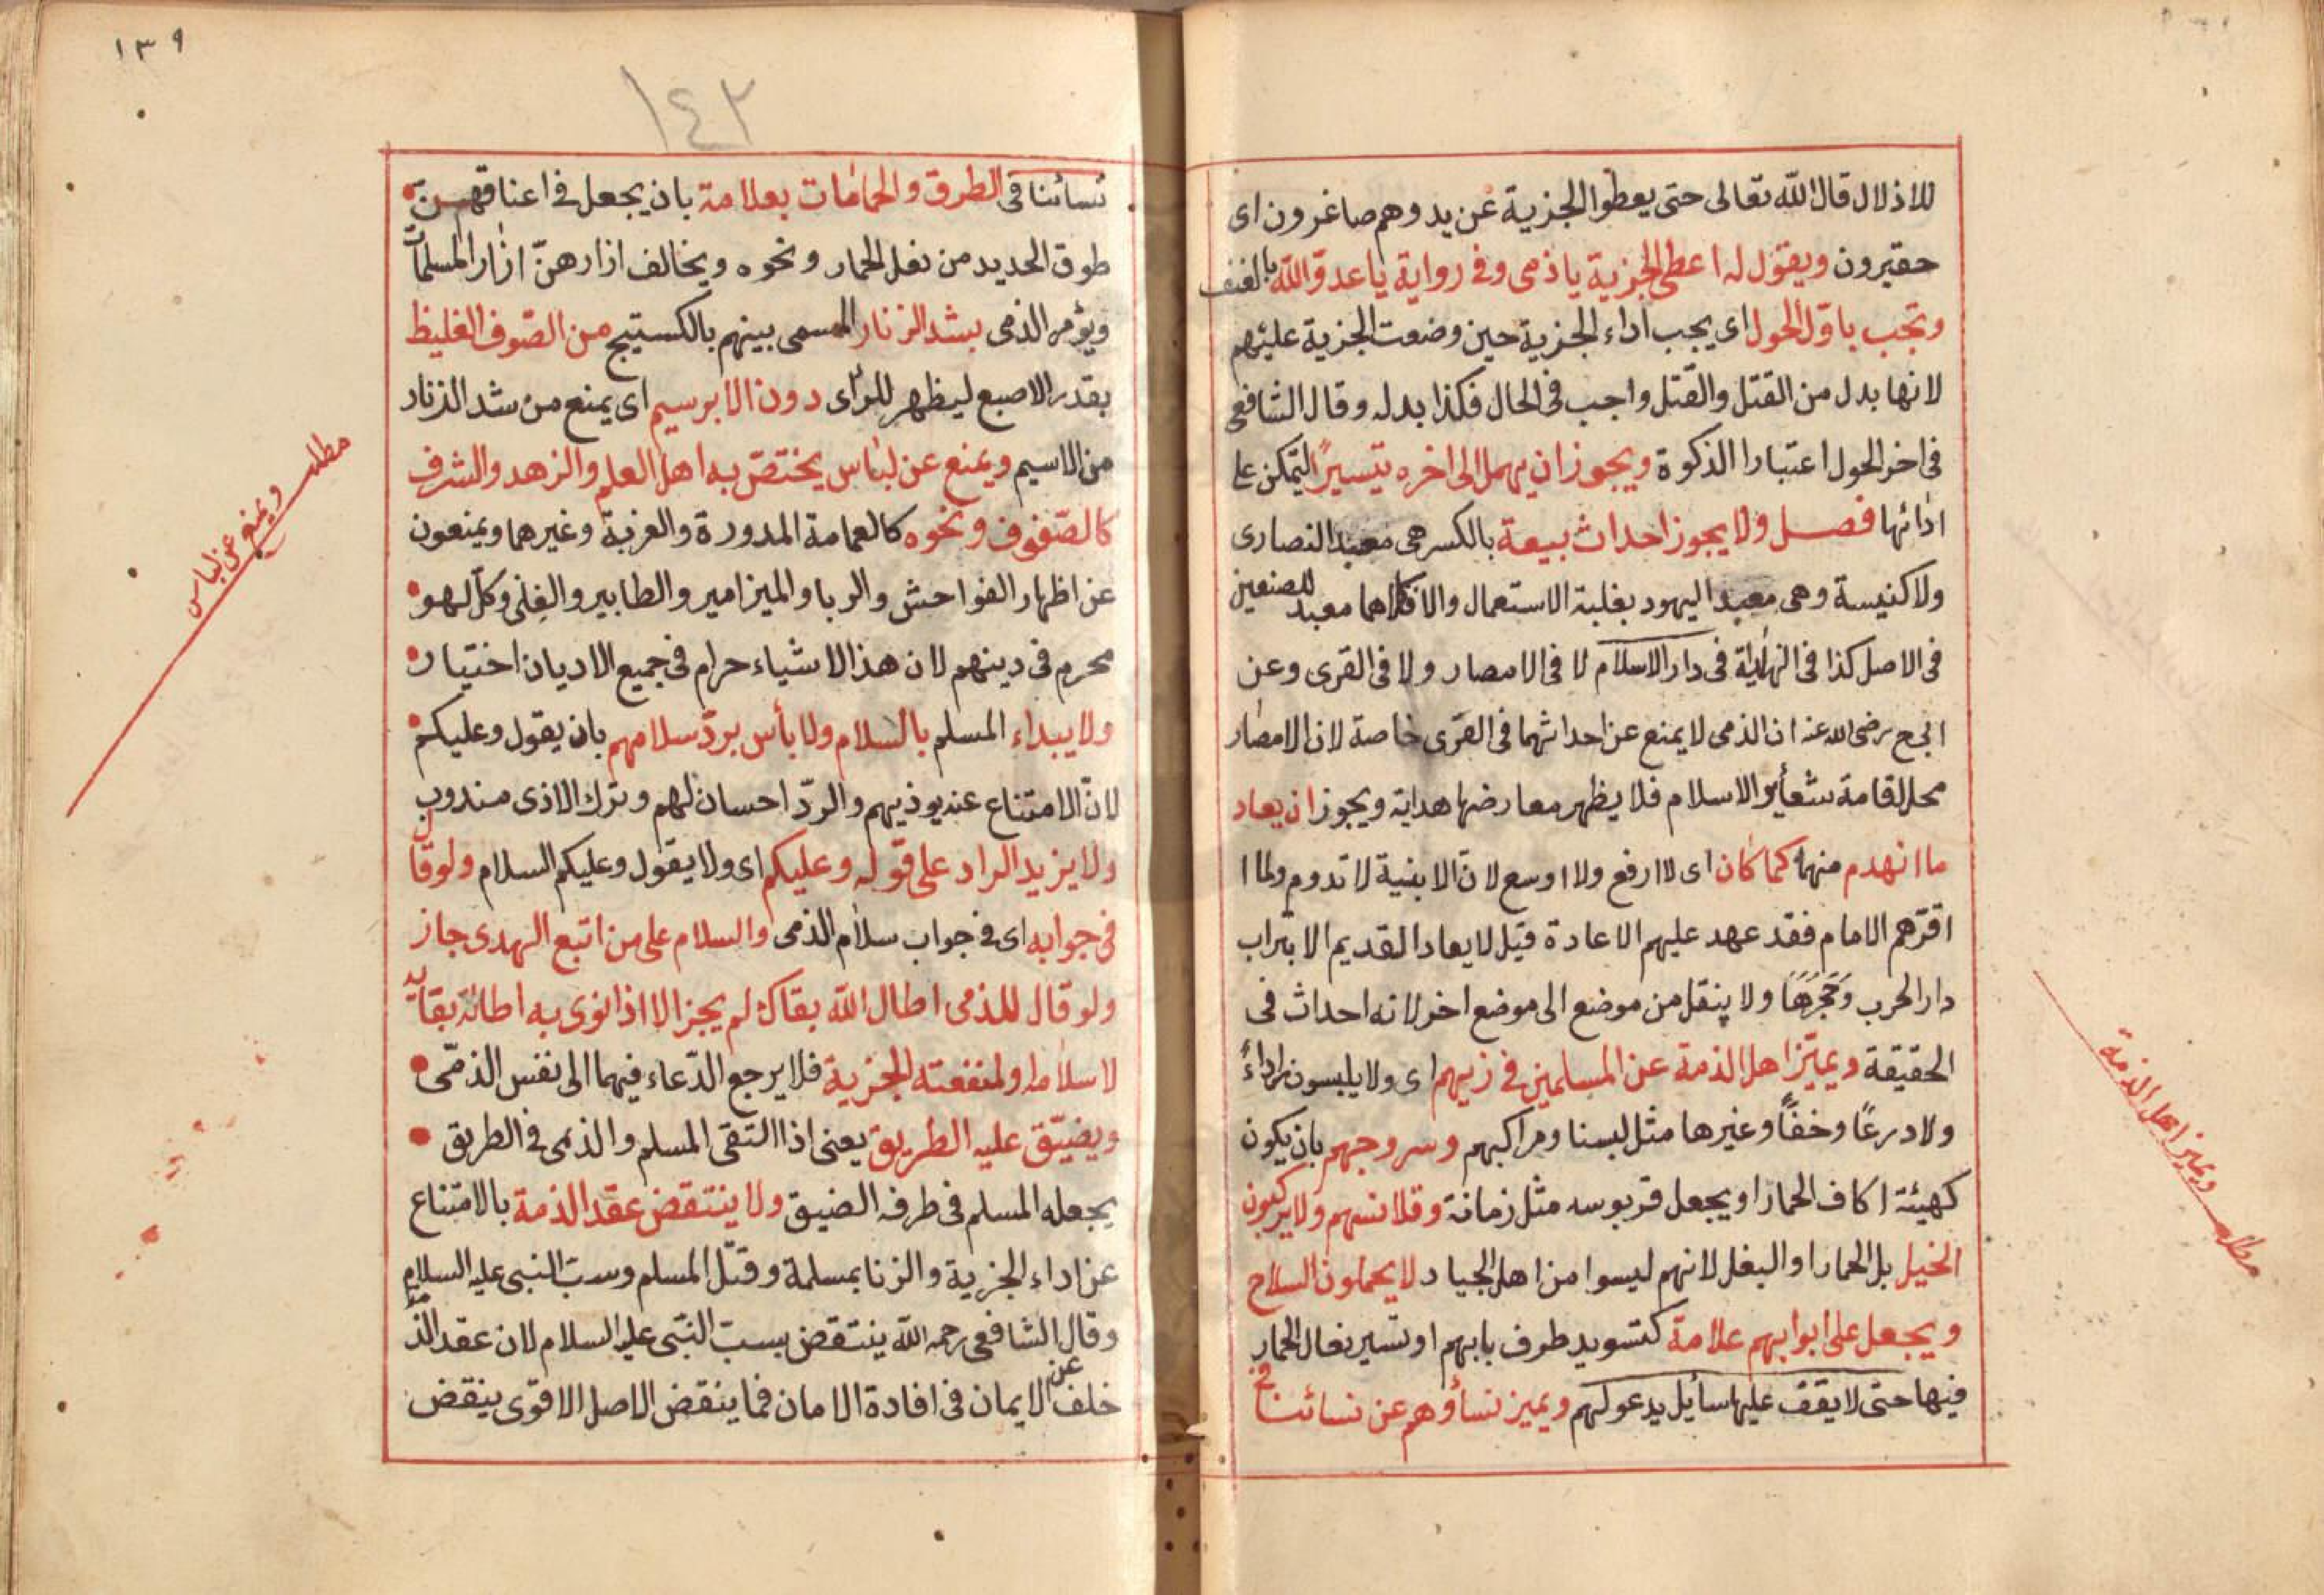 للاذلال قال الله تعالى حتى يعطوا الجزية عن يد وهم صاغرون اى
حقيرون ويقول له اعطى الجزية يا ذمى وفى رواية يا عدو الله بالعنف
وتجب باول الحول اى يجب اداء الجزية حين وضعت الجزية عليهم
لانها بدل من القتل والقتل واجب فى الحال فكذا بدله وقال الشافعى
فى اخر الحول اعتبارا الذكوة ويجوز ان يهمل الى اخره تيسيرًا ليتمكن على
ادائها فصل ولا يجوز احداث بيعة بالكسر هى معبد النصارى
ولا كنيسة وهى معبد اليهود بغلبة الاستعمال والا فكلاهما معبد للصنفين
فى الاصل كذا فى النهاية فى دار الاسلام لا فى الامصار ولا فى القرى وعن
ابى ح رضى الله عنه ان الذمى لا يمنع عن احداثهما فى القرى خاصة لان الامصار
محل اقامة شعاير الاسلام فلا يظهر معارضها هداية ويجوز ان يعاد
ما انهدم منهما كما كان اى لا ارفع ولا اوسع لان الابنية لا تدوم ولما
اقرهم الامام فقد عهد عليهم الاعادة قيل لا يعاد القديم الا بتراب
دار الحرب وحجرها ولا ينقل من موضع الى موضع اخر لانه احداث فى
الحقيقة ويميز اهل الذمة عن المسلمين فى زيهم اى ولا يلبسون رداءً
ولا درعًا وخفًا وغيرها مثل لبسنا ومراكبهم وسروجهم بان يكون
كهيئة اكاف الحمار او يجعل قربوسه مثل زمانة وقلانسهم ولا يركبون
الخيل بل الحمار او البغل لانهم ليسوا من اهل الجياد لا يحملون السلاح
ويجعل على ابوابهم علامة كتسويد طرف بابهم او تسير نعال الحمار
فيها حتى لا يقف عليها سايل يدعو لهم ويميز نساؤهم عن نسائنا فى
مطلب ويميز اهل الذمة
١٣٩
١٤٢
نسائنا فى الطرق والحمامات بعلامة بان يجعل فى اعناقهن
طوق الحديد من نعل الحمار ونحوه ويخالف ازارهن ازار المسلمات
ويؤمر الذمى بشد الزنار المسمى بينهم بالكستيج من الصوف الغليظ
بقدر الاصبع ليظهر للرائى دون الابرسيم اى يمنع من شد الزنار
من الاسيم ويمنع عن لباس يختص به اهل العلم والزهد والشرف
كالصفوف ونحوه كالعمامة المدورة والعزبة وغيرهما ويمنعون
عن اظهار الفواحش والربا والميزامير والطنابير والغنى وكل لهو
محرم فى دينهم لان هذا الاشياء حرام فى جميع الاديان اختيار
ولا يبداء المسلم بالسلام ولا بأس برد سلامهم بان يقول وعليكم
لان الامتناع عنه يوذيهم والرد احسان لهم وترك الاذى مندوب
ولا يزيد الراد على قوله وعليكم اى ولا يقول وعليكم السلام ولو قال
فى جوابه اى فى جواب سلام الذمى والسلام على من اتبع الهدى جاز
ولو قال للذمى اطال الله بقاك لم يجز الا اذا نوى به اطالة بقائه
لاسلامه او لمنفعته الجزية فلا يرجع الدعاء فيهما الى نفس الذمى
ويضيق عليه الطريق يعنى اذا التقى المسلم والذمى فى الطريق
يجعله المسلم فى طرفه الضيق ولا ينتقض عقد الذمة بالامتناع
عن اداء الجزية والزنا بمسلمة وقتل المسلم وسب النبى عليه السلام
وقال الشافعى رحمه الله ينتقض بسب النبى عليه السلام لان عقد الذمة
خلف عن الايمان فى افادة الامان فما ينقض الاصل الاقوى ينقض
مطلب ويمنع عن لباس